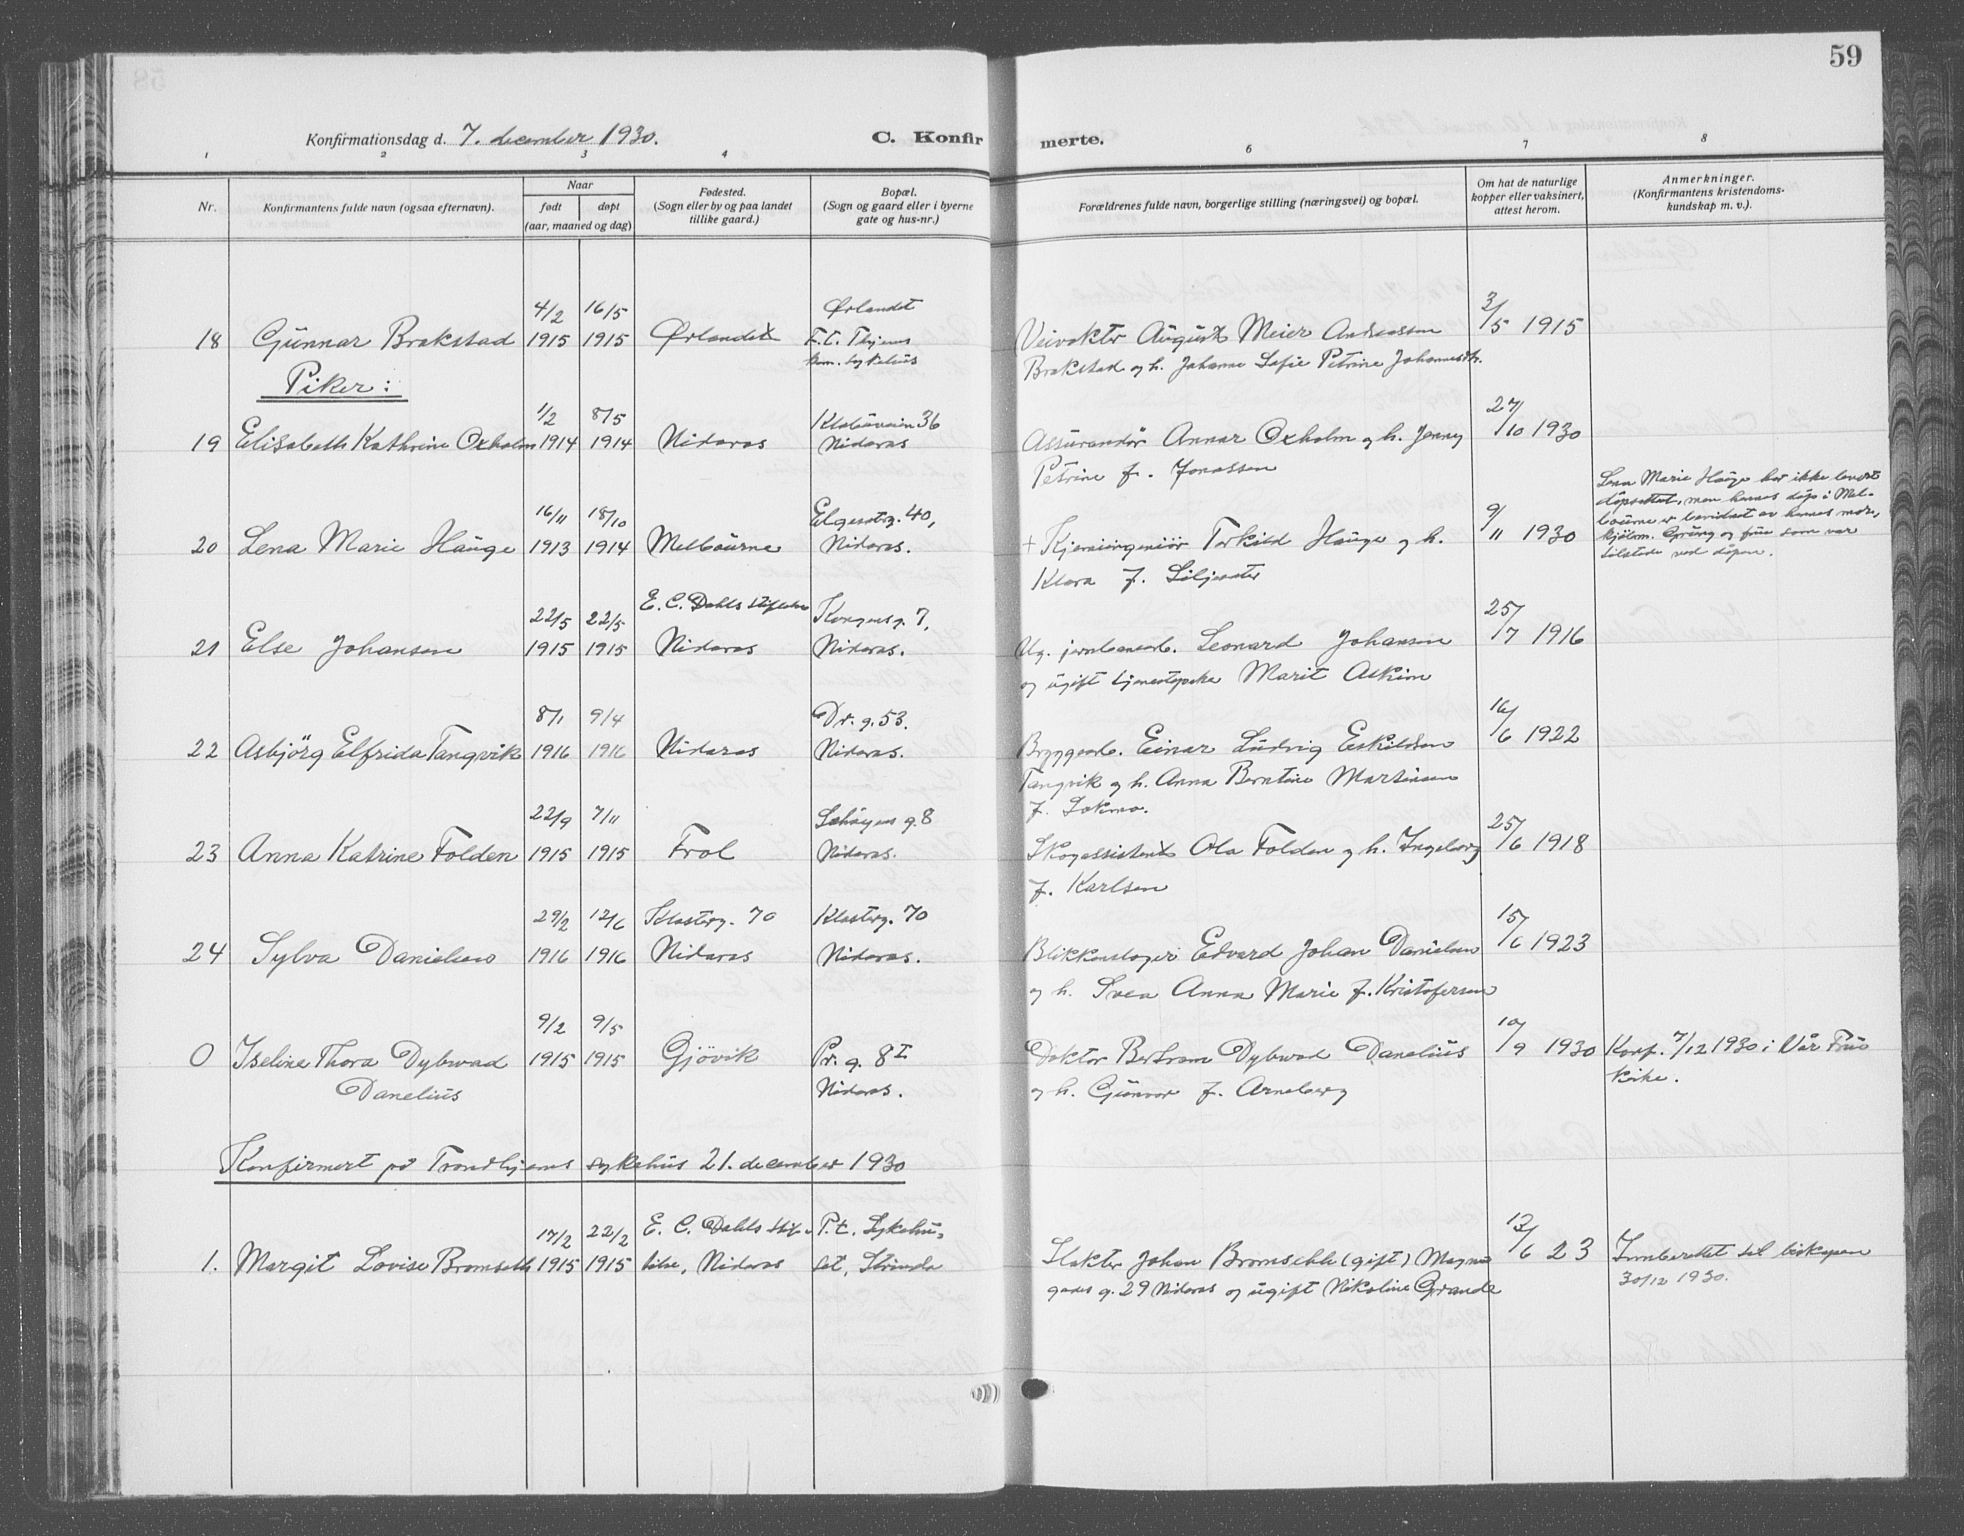 59
Konfirmationsdag d. 7. december 1930.
C. Konfir merte.
1 2 3 4 5 6 7 8
Nr.
Konfirmantens fulde navn (ogsaa efternavn).
Naar
født døpt
(aar, maaned og dag)
Fødested.
(Sogn eller by og paa landet
tillike gaard.)
Bopæl.
(Sogn og gaard eller i byerne
gate og hus-nr.)
Forældrenes fulde navn, borgerlige stilling (næringsvei) og bopæl.
Om hat de naturlige
kopper eller vaksinert,
attest herom.
Anmerkninger.
(Konfirmantens kristendoms-
kundskap m. v.).
4/2 16/5 Ørlandet 3/5 1915
18 Gunnar Brakstad 1915 1915 Ørlandet F.C. Thjems Veivokter August Meier Andreassen
kom. sykehus Brakstad og h. Johanne Sofie Petrine Johannesdtr.
Piker:
1/2 8/5 Klæbuveien 36 27/10 1930
19 Elisabeth Kathrine Oxholm 1914 1914 Nidaros Nidaros Assurandør Annar Oxholm og h. Jenny
Petrine f. Jonassen
16/11 18/10 Elgesetrg. 40, 9/11 1930 Lena Marie Hauge har ikke levert
20 Lena Marie Hauge 1913 1914 Melbourne Nidaros. + Kjemiingeniør Torkild Hauge og h.
Klara f. Siljesæter
døpsattest, men hennes døp i Mel-
bourne er bevidnet av hennes mor,
kjølm. Gprung og frue som var
tilstede ved døpen.
22/5 22/5 E. C. Dahls stiftelse Kongensg. 7, 25/7 1916
21 Else Johansen 1915 1915 Nidaros Nidaros. Ug. jernbanearb. Leonard Johansen
og ugift tjenestepike Marit Askim
8/1 9/4 Dr. g. 53. 16/6 1922
22 Asbjörg Elfrida Tangvik 1916 1916 Nidaros Nidaros. Bryggearb. Einar Ludvig Eskildsen
Tangvik og h. Anna Berntine Martinsen
f. Sakmo.
22/9 7/11 Schøyens g. 8 25/6 1918
23 Anna Katrine Folden 1915 1915 Frol Nidaros. Skogassistent Ola Folden og h. Ingeborg
f. Karlsen
29/2 12/6 Klosterg. 70 Klosterg. 70 15/6 1923
24 Sylva Danielsen 1916 1916 Nidaros Nidaros. Blikkenslager Edvard Johan Danielsen
og h. Svea Anna Marie f. Kristofersen
9/2 9/5 10/9 1930
0 Iseline Thora Dybwad 1915 1915 Gjövik Pr. g. 8 I Doktor Bertram Dybwad Danelius Konf. 7/12 1930 i Vår Frue
Danelius Nidaros. og h. Gunvor f. Arneberg kirke.
Konfirmert på Trondhjems sykehus 21. december 1930
17/2 22/2 E. C. Dahls stif- P.t. Sykehu- 12/6 23
1. Margit Lovise Bromseth 1915 1915 telse, Nidaros set, Strinda Slakter Johan Bromseth (gift) Magnus Innberettet til biskopen
gades g. 29 Nidaros og ugift Nikoline Grande 30/12 1930.